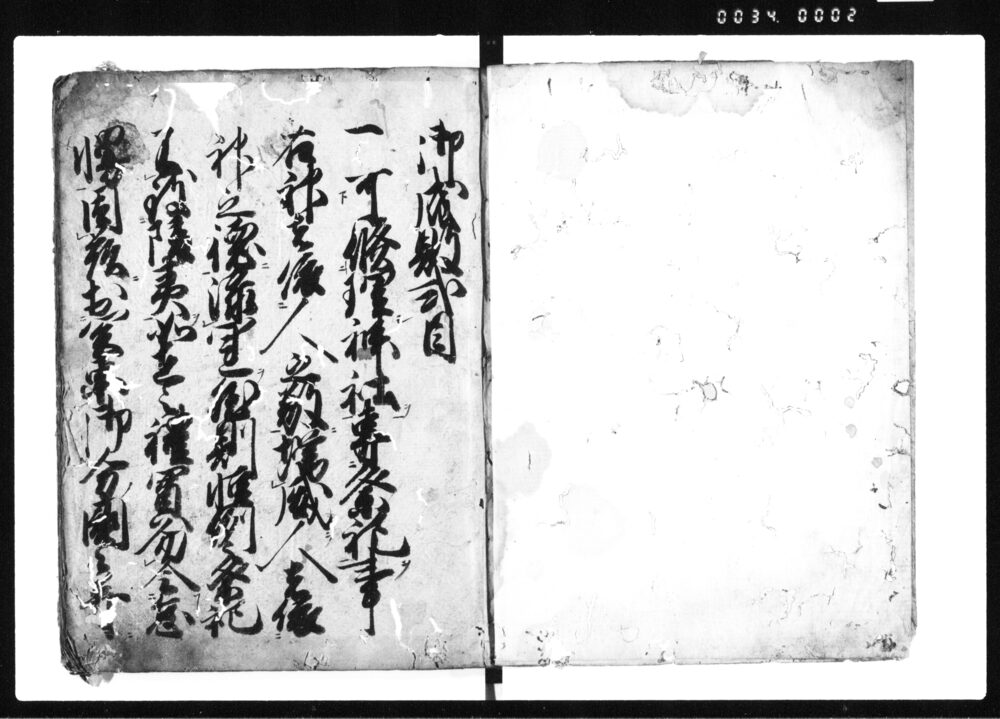 0034. 0002
御成敗式目
一可修理神社専祭祀事
右神者依人之敬増威人者依
神之徳添運然則恒例祭祀
不致陵夷如在之禮奠勿令怠
慢因茲於関東御分國々并